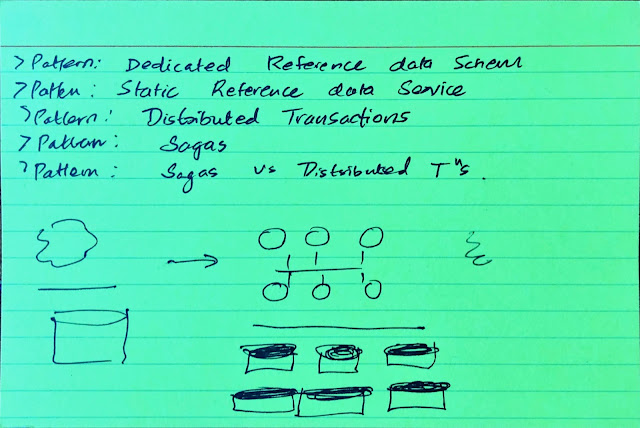 > Pattern: Dedicated Reference data Schema
> Pattern: Static Reference data Service
> Pattern: Distributed Transactions
> Pattern: Sagas
> Pattern: Sagas vs Distributed Tⁿs.